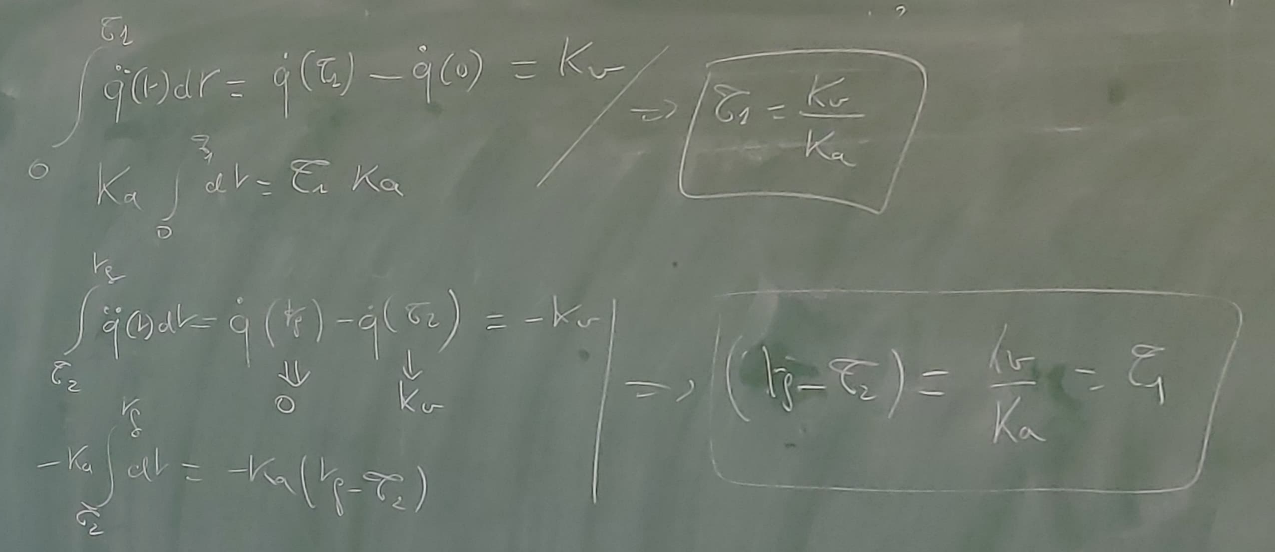 ∫₀^{τ₁} q̈(t)dt = q̇(τ₁) − q̇(0) = Kv
Ka ∫₀^{τ₁} dt = τ₁ Ka
⇒ τ₁ = Kv/Ka
∫_{τ₂}^{t_f} q̈(t)dt = q̇(t_f) − q̇(τ₂) = −Kv
⇓ ↓
0 Kv
−Ka ∫_{τ₂}^{t_f} dt = −Ka(t_f − τ₂)
⇒ (t_f − τ₂) = Kv/Ka = τ₁